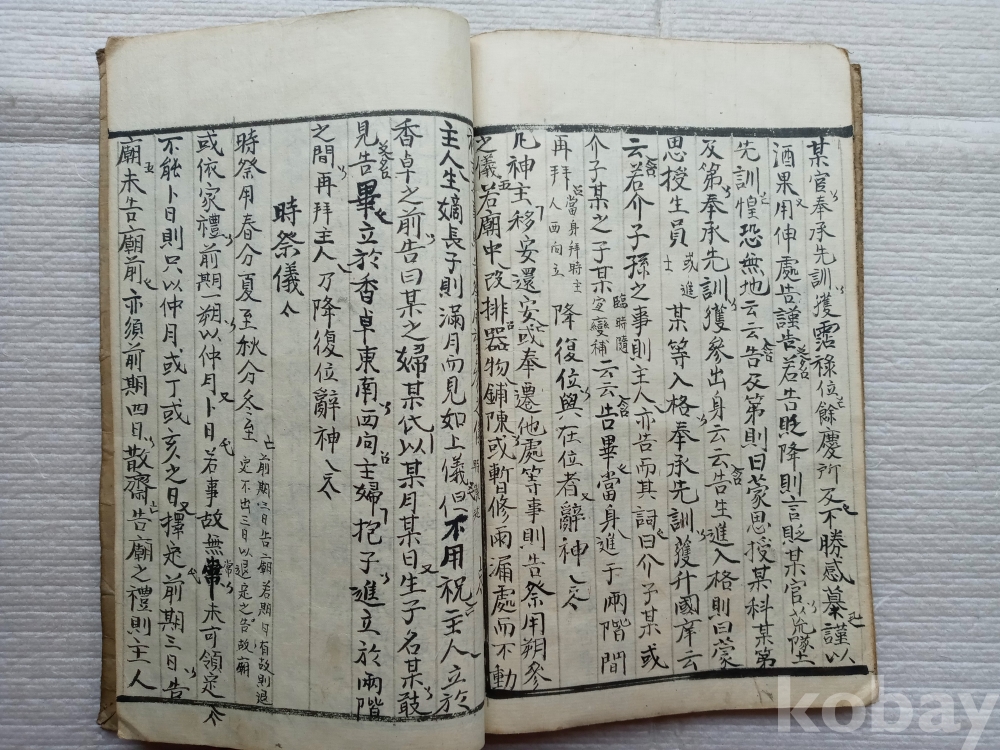 某官奉承先訓獲霑祿位餘慶所及不勝感慕謹以
酒果用伸處告謹告若告貶降則言貶某官荒墜
先訓惶恐無地云云告及第則曰蒙恩授某科某第
及第奉承先訓獲參出身云云告生進入格則曰蒙
恩授生員或進士某等入格奉承先訓獲升國庠云
云若介子孫之事則主人亦告而其詞曰介子某或
介子某之子某臨時隨宜變補云云告畢當身進于兩階間
再拜當身拜時主人西向立降復位與在位者辭神
凡神主移安還安或奉遷他處等事則告祭用朔參
之儀若廟中改排器物鋪陳或暫修雨漏處而不動
主人生嫡長子則滿月而見如上儀但不用祝主人立於
香卓之前告曰某之婦某氏以某月某日生子名某敢
見告畢立於香卓東南西向主婦抱子進立於兩階
之間再拜主人乃降復位辭神
時祭儀
時祭用春分夏至秋分冬至前期三日告廟若期日有故則退定不出三日以退定之告故廟
或依家禮前期一朔以仲月卜日若事故無常未可領定
不能卜日則只以仲月或丁或亥之日擇定前期三日告
廟未告廟前亦須前期四日散齋告廟之禮則主人
kobay